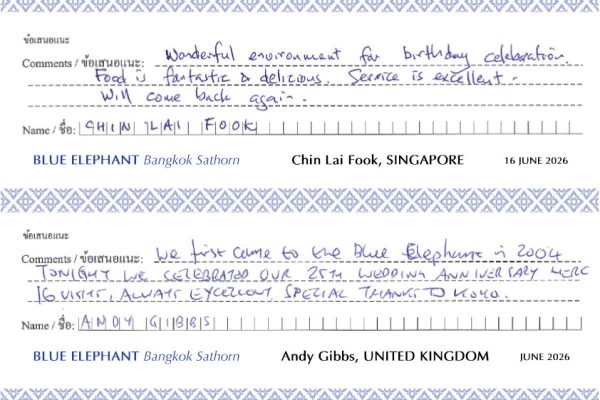 ข้อเสนอแนะ
Comments / ข้อเสนอแนะ: Wonderful environment for birthday celebration.
Food is fantastic & delicious. Service is excellent.
Will come back again.
Name / ชื่อ: CHIN LAI FOOK
BLUE ELEPHANT Bangkok Sathorn Chin Lai Fook, SINGAPORE 16 JUNE 2026
ข้อเสนอแนะ
Comments / ข้อเสนอแนะ: We first came to the Blue Elephant in 2004
TONIGHT WE CELEBRATED OUR 25TH WEDDING ANNIVERSARY HERE
16 VISITS, ALWAYS EXCELLENT SPECIAL THANKS TO
Name / ชื่อ: ANDY GIBBS
BLUE ELEPHANT Bangkok Sathorn Andy Gibbs, UNITED KINGDOM JUNE 2026